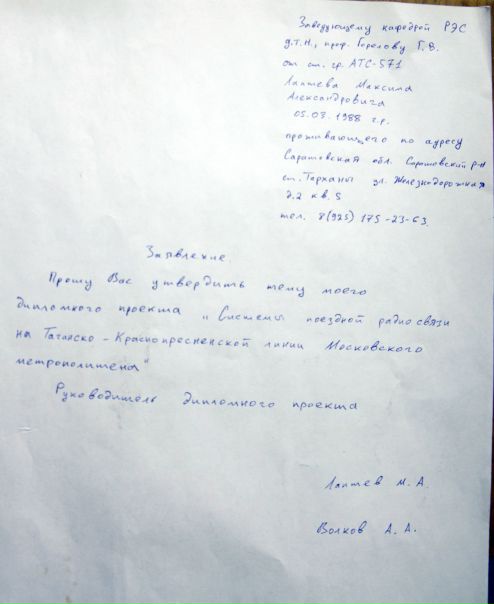 Заведующему кафедрой РЭС
д.т.н., проф. Горелову Г.В.
от ст. гр. АТС-571
Лаптева Максима
Александровича
05.03.1988 г.р.
проживающего по адресу
Саратовская обл. Саратовский р-н
ст. Тарханы ул. Железнодорожная
д.2 кв. 5
тел. 8(925) 175-23-63.
Заявление.
Прошу Вас утвердить тему моего
дипломного проекта „Системы поездной радиосвязи
на Таганско-Краснопресненской линии Московского
метрополитена"
Руководитель дипломного проекта
Лаптев М. А.
Волков А. А.